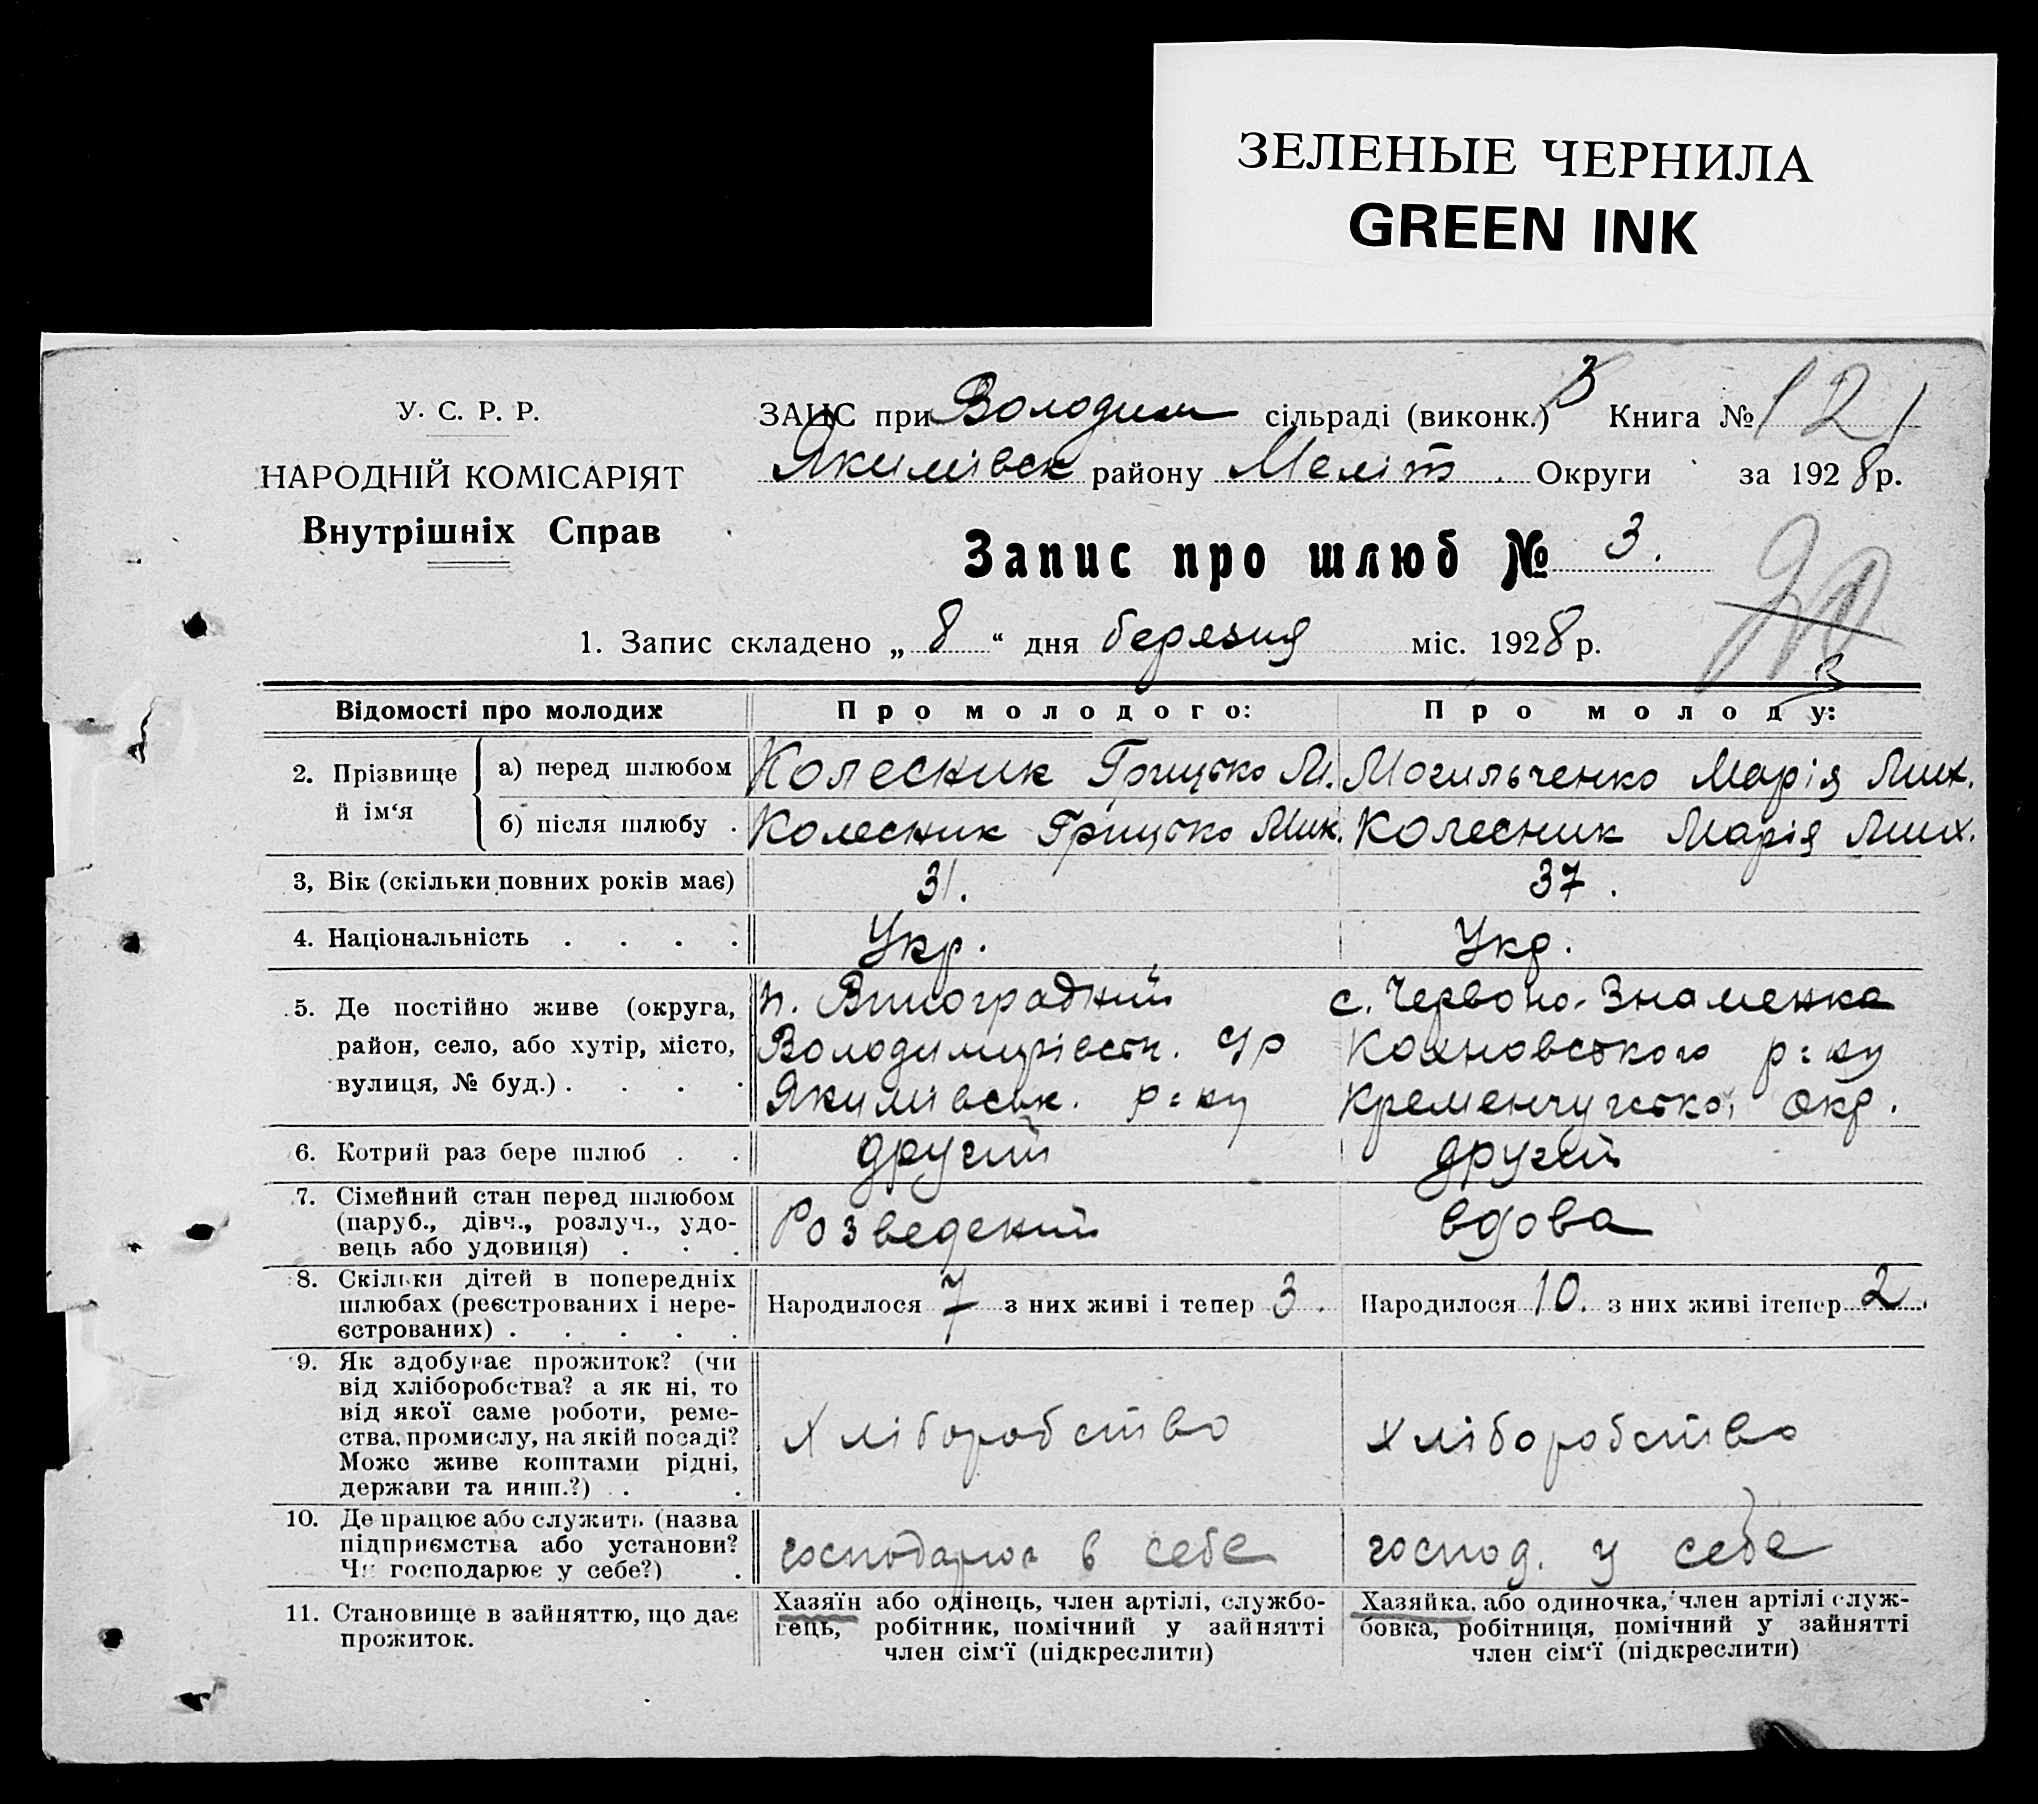 ЗЕЛЕНЫЕ ЧЕРНИЛА
GREEN INK
У. С. Р. Р.
НАРОДНІЙ КОМІСАРІЯТ
Внутрішніх Справ
ЗАЦС при Володим сільраді (виконк.) 3 Книга № 121
Якимівск району Меліт. Округи за 1928 р.
Запис про шлюб № 3.
1. Запис складено „ 8 “ дня березня міс. 1928 р.
Відомості про молодих
Про молодого:
Про молоду:
2. Прізвище й ім‘я
а) перед шлюбом
Колесник Грицько М.
Могильченко Марія Мих.
б) після шлюбу .
Колесник Грицько Мик.
Колесник Марія Мих.
3, Вік (скільки повних років має)
31.
37.
4. Національність . . . .
Укр.
Укр.
5. Де постійно живе (округа,
район, село, або хутір, місто,
вулиця, № буд.) . . . .
п. Виноградний
Володимирівськ. с/р
Якимівськ. р=ну
с. Червоно-Знаменка
р=ну
Кременчугської Окр.
6. Котрий раз бере шлюб . .
другий
другий
7. Сімейний стан перед шлюбом
(паруб., дівч., розлуч., удо-
вець або удовиця) . . .
Розведений
вдова
8. Скільки дітей в попередніх
шлюбах (реєстрованих і нере-
єстрованих) . . . . .
Народилося 7 з них живі і тепер 3.
Народилося 10. з них живі ітепер 2.
9. Як здобуває прожиток? (чи
від хліборобства? а як ні, то
від якої саме роботи, реме-
ства, промислу, на якій посаді?
Може живе коштами рідні,
держави та инш.?) . .
Хліборобство
Хліборобство
10. Де працює або служить (назва
підприємства або установи?
Чи господарює у себе?) .
господарює в себе
господ. у себе
11. Становище в зайняттю, що дає
прожиток.
Хазяїн або одінець, член артілі, службо-
вець, робітник, помічний у зайнятті
член сім‘ї (підкреслити)
Хазяйка, або одиночка, член артілі служ-
бовка, робітниця, помічний у зайнятті
член сім‘ї (підкреслити)